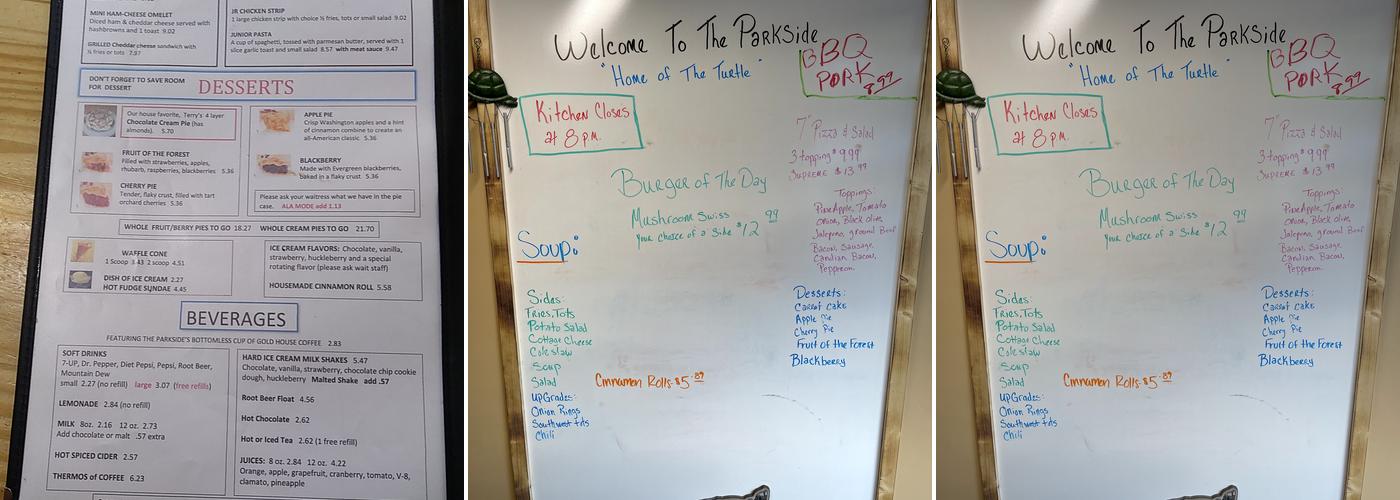 MINI HAM-CHEESE OMELET
Diced ham & cheddar cheese served with
hashbrowns and 1 toast 9.02
GRILLED Cheddar cheese sandwich with
½ fries or tots 7.97
JR CHICKEN STRIP
1 large chicken strip with choice ½ fries, tots or small salad 9.02
JUNIOR PASTA
A cup of spaghetti, tossed with parmesan butter, served with 1
slice garlic toast and small salad 8.57 with meat sauce 9.47
DON'T FORGET TO SAVE ROOM
FOR DESSERT
DESSERTS
Our house favorite, Terry's 4 layer
Chocolate Cream Pie (has
almonds). 5.70
FRUIT OF THE FOREST
Filled with strawberries, apples,
rhubarb, raspberries, blackberries 5.36
CHERRY PIE
Tender, flaky crust, filled with tart
orchard cherries 5.36
APPLE PIE
Crisp Washington apples and a hint
of cinnamon combine to create an
all-American classic 5.36
BLACKBERRY
Made with Evergreen blackberries,
baked in a flaky crust 5.36
Please ask your waitress what we have in the pie
case. ALA MODE add 1.13
WHOLE FRUIT/BERRY PIES TO GO 18.27 WHOLE CREAM PIES TO GO 21.70
WAFFLE CONE
1 Scoop 3.43 2 scoop 4.51
DISH OF ICE CREAM 2.27
HOT FUDGE SUNDAE 4.45
ICE CREAM FLAVORS: Chocolate, vanilla,
strawberry, huckleberry and a special
rotating flavor (please ask wait staff)
HOUSEMADE CINNAMON ROLL 5.58
BEVERAGES
FEATURING THE PARKSIDE'S BOTTOMLESS CUP OF GOLD HOUSE COFFEE 2.83
SOFT DRINKS
7-UP, Dr. Pepper, Diet Pepsi, Pepsi, Root Beer,
Mountain Dew
small 2.27 (no refill) large 3.07 (free refills)
LEMONADE 2.84 (no refill)
MILK 8oz. 2.16 12 oz. 2.73
Add chocolate or malt .57 extra
HOT SPICED CIDER 2.57
THERMOS of COFFEE 6.23
HARD ICE CREAM MILK SHAKES 5.47
Chocolate, vanilla, strawberry, chocolate chip cookie
dough, huckleberry Malted Shake add .57
Root Beer Float 4.56
Hot Chocolate 2.62
Hot or Iced Tea 2.62 (1 free refill)
JUICES: 8 oz. 2.84 12 oz. 4.22
Orange, apple, grapefruit, cranberry, tomato, V-8,
clamato, pineapple
Welcome To The ParkSide
"Home of The Turtle"
BBQ
PORK
8.99
Kitchen Closes
at 8 p.m.
7" Pizza & Salad
3 topping $9.99
Supreme $13.99
Burger of The Day
Mushroom Swiss
Your Choice of a Side $12.99
Toppings
PineApple, Tomato
Onion, Black olive,
Jalepeno, ground Beef
Bacon, Sausage,
Candian Bacon,
Pepperoni
Soup:
Sides:
Fries, Tots
Potato Salad
Cottage Cheese
Coleslaw
Soup
Salad
UpGrades:
Onion Rings
Southwest tots
Chili
Desserts:
Carrot Cake
Apple Pie
Cherry Pie
Fruit of the Forest
Blackberry
Cinnamon Rolls $5.89
Welcome To The ParkSide
"Home of The Turtle"
BBQ
PORK
8.99
Kitchen Closes
at 8 p.m.
7" Pizza & Salad
3 topping $9.99
Supreme $13.99
Burger of The Day
Mushroom Swiss
Your Choice of a Side $12.99
Toppings
PineApple, Tomato
Onion, Black olive,
Jalepeno, ground Beef
Bacon, Sausage,
Candian Bacon,
Pepperoni
Soup:
Sides:
Fries, Tots
Potato Salad
Cottage Cheese
Coleslaw
Soup
Salad
UpGrades:
Onion Rings
Southwest tots
Chili
Desserts:
Carrot Cake
Apple Pie
Cherry Pie
Fruit of the Forest
Blackberry
Cinnamon Rolls $5.89